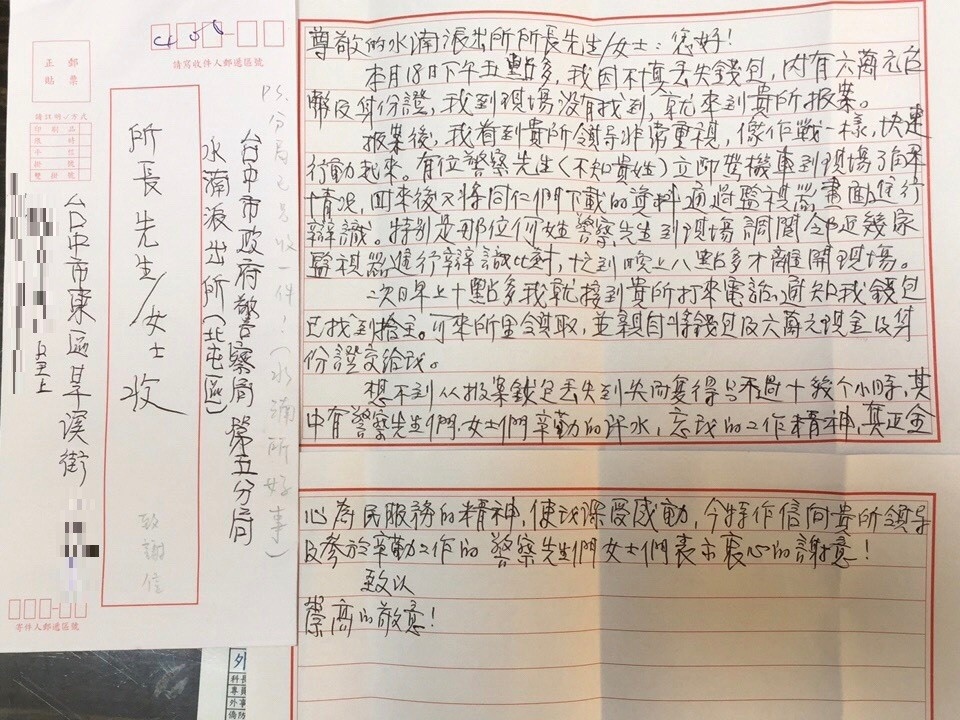 尊敬的水湳派出所所長先生/女士：您好！
本月18日下午五點多，我因不慎丟失錢包，內有六萬元台
幣及身份證，我到現場沒有找到，就來到貴所报案。
报案後，我看到貴所領导非常重視，像作戰一樣，快速
行動起來。有位警察先生（不知貴姓）立即騎機車到现場了解
情况，回來後又將同仁們下載的資料通過監視器畫面進行
辯識。特别是那位何姓警察先生到现場調閱今附近幾家
監視器進行辯識比對，忙到晚上八點多才離開现場。
次日早上十點多我就接到貴所打來電話，通知我錢包
已找到拾主。可來所里領取，並親自將錢包及六萬元现金及身
份證交給我。
想不到从报案錢包丟失到失而复得只不過十幾个小時，其
中有警察先生們、女士們辛勤的汗水，忘我的工作精神，真正全
心為民服務的精神，使我深受感動，今特作信向貴所領导
及參於辛勤工作的警察先生們女士們表示衷心的謝意！
致以
崇高的敬意！
正 郵
貼 票
請寫收件人郵遞區號
P.S. 分局也另收一件！（水湳所好事）
台中市政府警察局第五分局
水湳派出所（北屯區）
所長先生/女士 收
致謝信
台中市東區旱溪街
寄件人郵遞區號